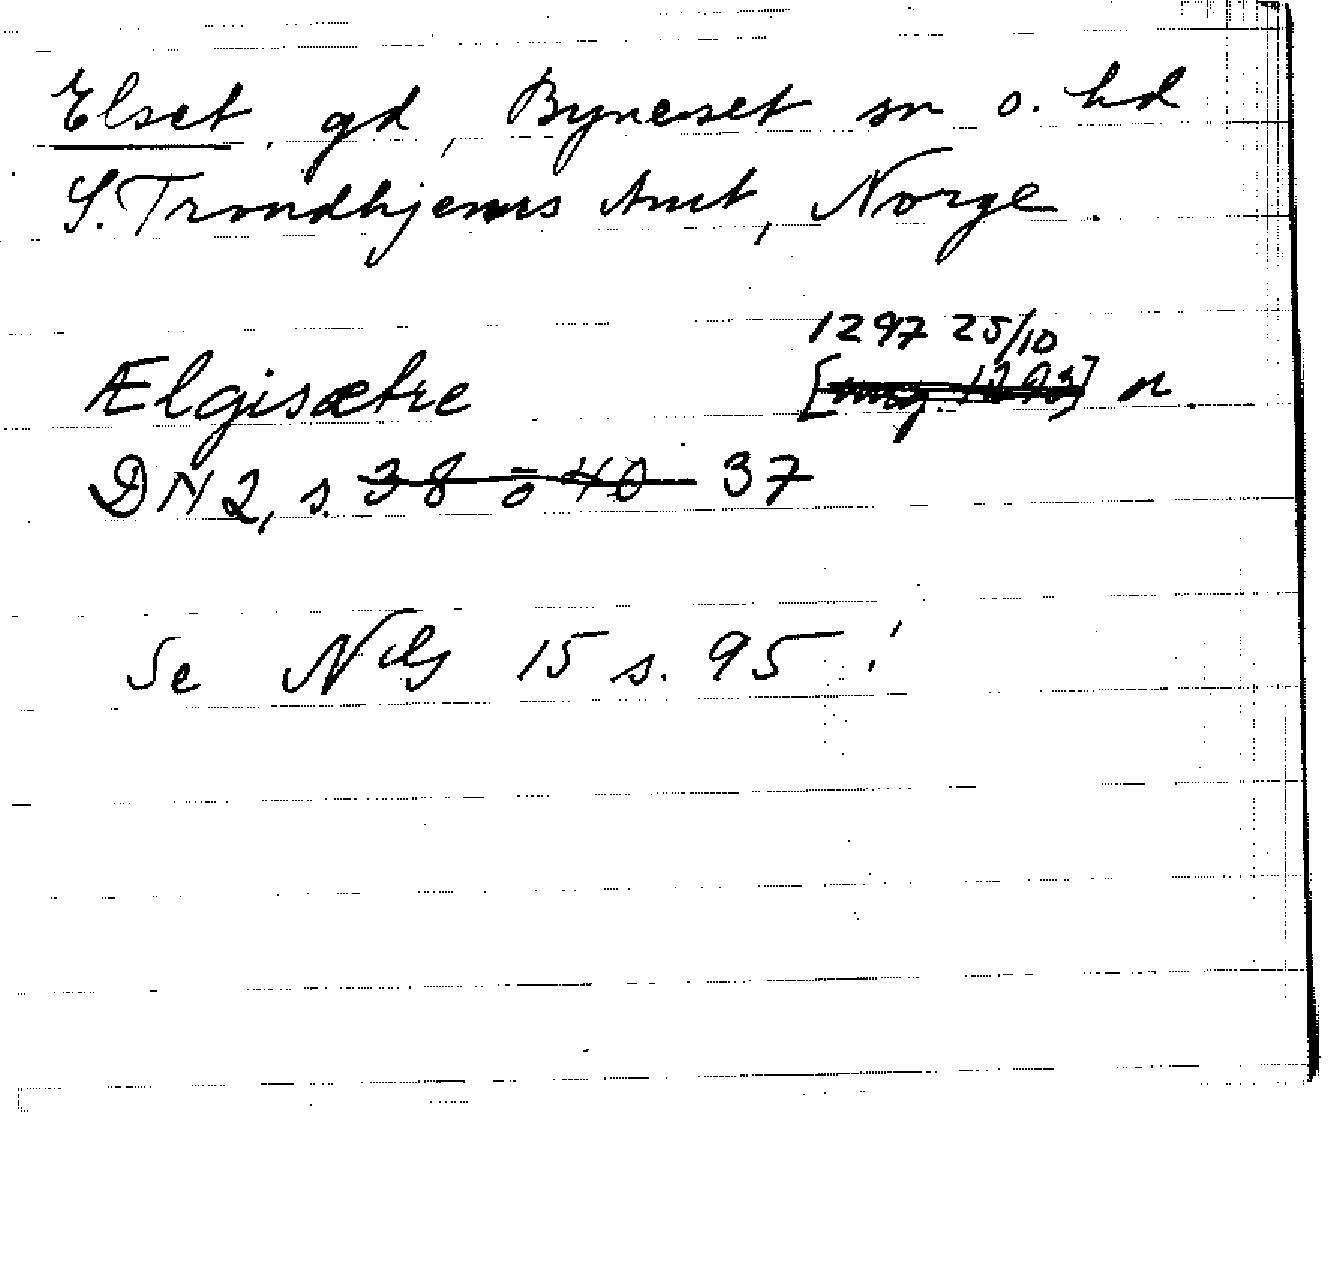 Elset, gd, Byneset sn o. hd
S. Trondhjems Amt, Norge.
1297 25/10
Ælgisætre [ung. 1293] or.
DN 2, s. 38 o 40 37
Se NG 15 s. 95!